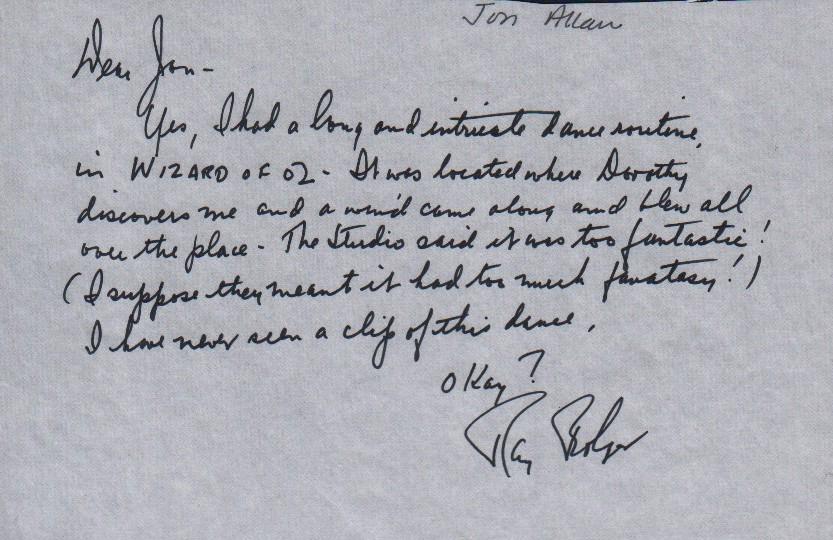 Jon Allan
Dear Jon-
Yes, I had a long and intricate dance routine,
in WIZARD OF OZ - It was located where Dorothy
discovers me and a wind came along and blew all
over the place - The Studio said it was too fantastic!
(I suppose they meant it had too much fanatasy!)
I have never seen a clip of this dance,
okay?
Ray Bolger